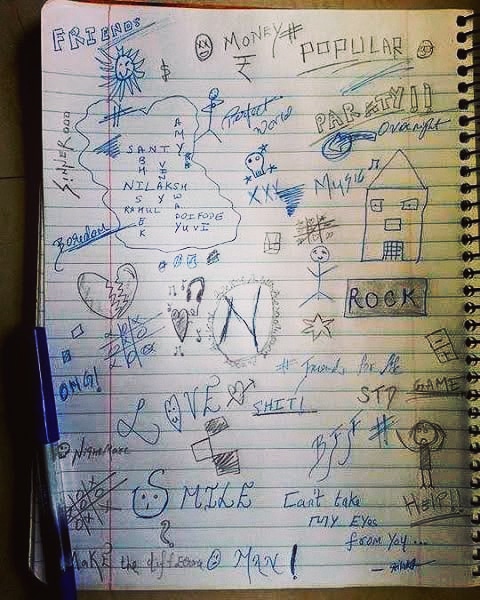 FRIENDS
MONEY #
₹
$
POPULAR
#
Perfect
World
PARETY!!
Overnight
SINNER
AMY
SANTY
NILAKSH
RAHUL
DOIFODE
YUVI
Boredom
XXX
Music
N
ROCK
# Friends for life
OMG!
LOVE
SHIT!
STD
GAME
BFF #
NIGHTMARE
SMILE
Can't take
my Eyes
from you...
HELP!!
?
MAKE the difference MAN!